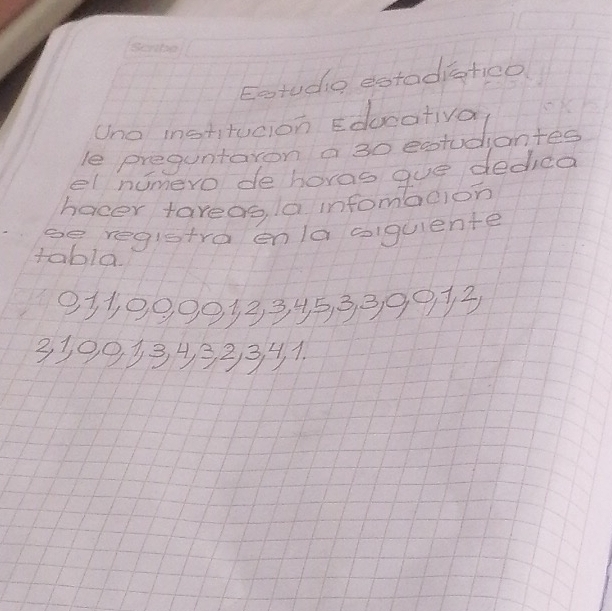 Scribe
Estudio estadístico
Una institución Educativa,
le preguntaron a 30 estudiantes
el número de horas que dedica
hacer tareas, la infomación
se registra en la siguiente
tabla.
0,1,1,0,0,0,0,1,2,3,4,5,3,3,0,0,1,2,
2,1,0,0,1,3,4,3,2,3,4,1.